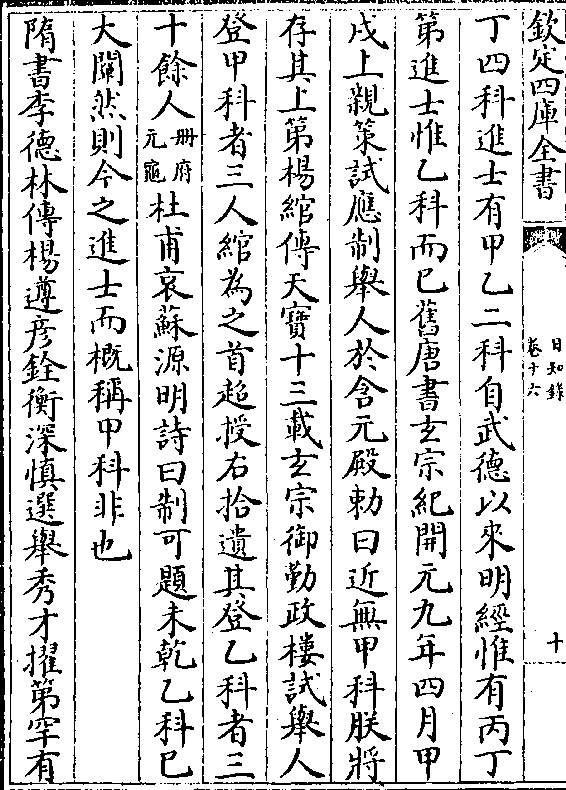 欽定四庫全書
日知錄
卷十六
十
丁四科進士有甲乙二科自武德以來明經惟有丙丁
第進士惟乙科而已舊唐書玄宗紀開元九年四月甲
戌上親策試應制舉人於含元殿勅曰近無甲科朕將
存其上第楊綰傳天寶十三載玄宗御勤政樓試舉人
登甲科者三人綰為之首超授右拾遺其登乙科者三
十餘人冊府元龜杜甫哀蘇源明詩曰制可題未乾乙科已
大闡然則今之進士而概稱甲科非也
隋書李德林傳楊遵彥銓衡深慎選舉秀才擢第罕有